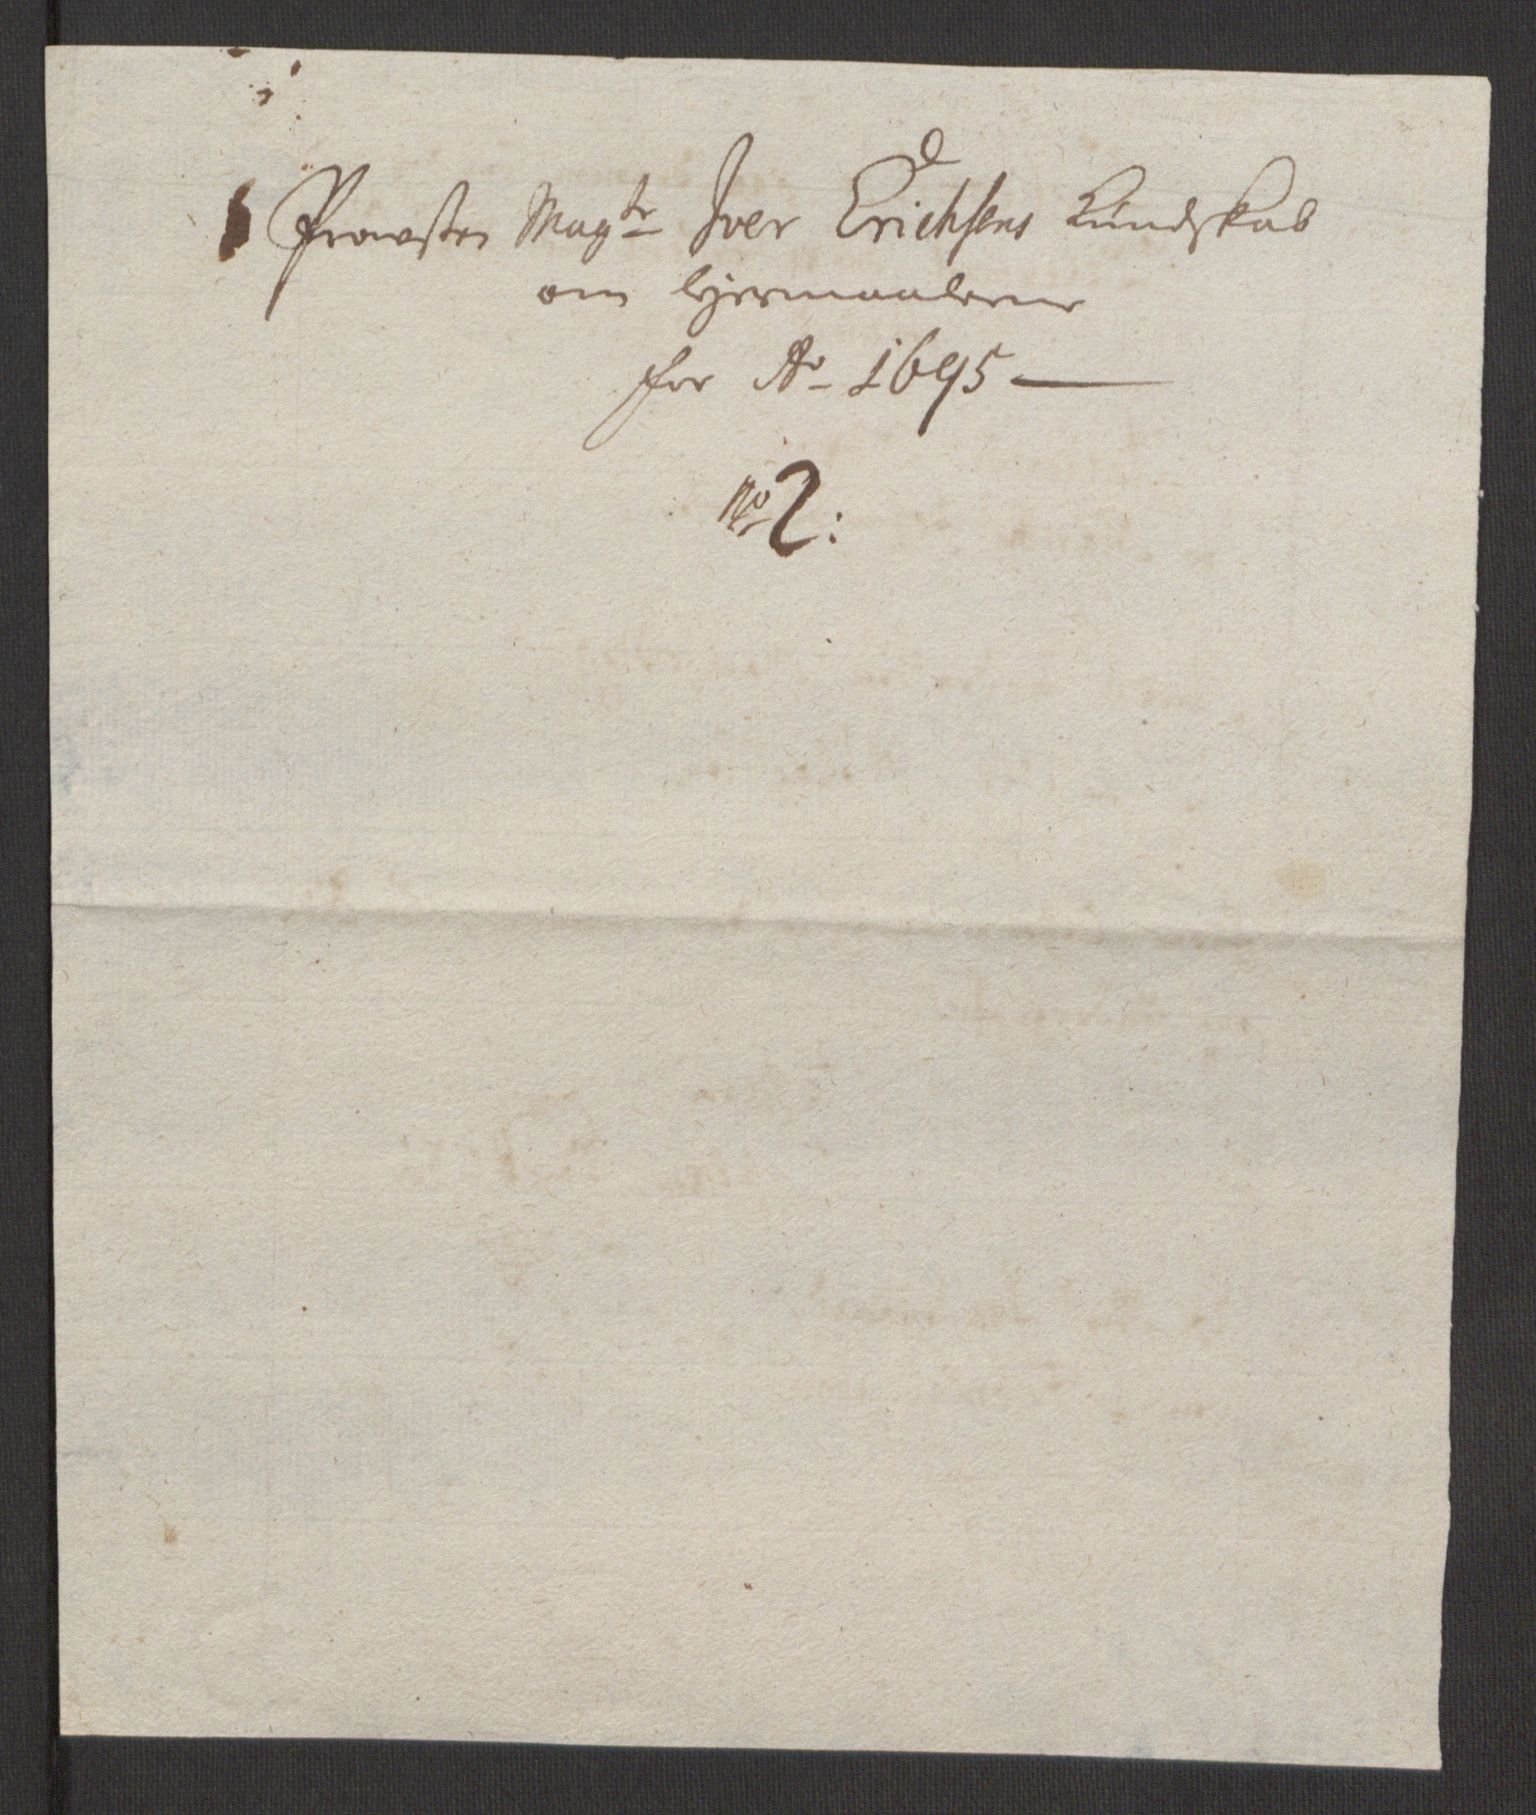 Prowsten Magtr Iver Erichsens Kundskab
om lejermaalene
for Ao 1695
No 2: